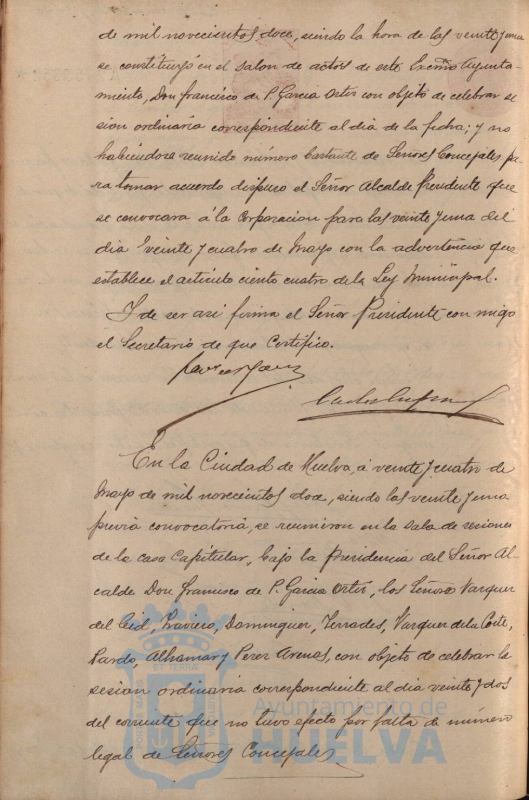 de mil novecientos doce, siendo la hora de las veinte y una
se constituyó en el salon de actos de este Excmo Ayunta-
miento, Don Francisco de P. Garcia Ortiz con objeto de celebrar se
sion ordinaria correspondiente al dia de la fecha; y no
habiendose reunido número bastante de Señores Concejales pa-
ra tomar acuerdo dispuso el Señor Alcalde Presidente que
se convocara á la Corporacion para las veinte y una del
dia veinte y cuatro de Mayo con la advertencia que
establece el articulo ciento cuatro de la Ley Municipal.
Y de ser asi firma el Señor Presidente con migo
el Secretario de que Certifico.
En la Ciudad de Huelva, á veinte y cuatro de
Mayo de mil novecientos doce, siendo las veinte y una
previa convocatoria, se reunieron en la sala de sesiones
de la casa Capitular, bajo la Presidencia del Señor Al-
calde Don Francisco de P. Garcia Ortiz, los Señores Vazquez
del Cid, Traviero, Dominguez, Terrades, Vazquez de la Corte,
Pardo, Alhamar y Perez Arenas, con objeto de celebrar la
sesion ordinaria correspondiente al dia veinte y dos
del corriente que no tuvo efecto por falta de número
legal de Señores Concejales.
Ayuntamiento de
HUELVA